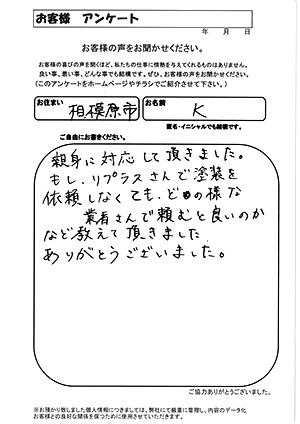 お客様 アンケート
年 月 日
お客様の声をお聞かせください。
お客様の喜びの声を聞くほど、私たちの仕事に情熱を与えてくれるものはありません。
良い事、悪い事、どんな事でも結構です。ぜひ、お客様の感想をお聞かせください。
(このアンケートをホームページやチラシでご紹介させて下さい。)
お住まい 相模原市 お名前 K
匿名・イニシャルでも結構です。
ご自由にお書きください。
親身に対応して頂きました。
もし、リプラスさんで塗装を
依頼しなくても、どの様な
業者さんで頼むと良いのか
など教えて頂きました
ありがとうございました。
ご協力ありがとうございました。
※お預かり致しました個人情報につきましては、弊社にて厳重に管理し、内容のデータ化
お客様との良好な関係を保つために使用させていただきます。